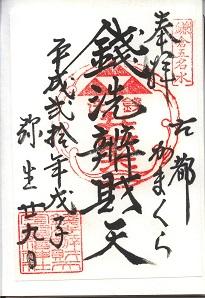 鎌倉五名水
奉拝
古都
かまくら
錢洗辨財天
平成弐拾年戊子
弥生廿九日